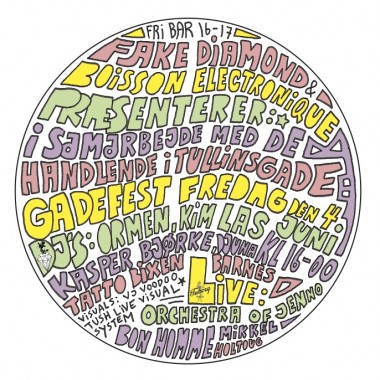 FRI BAR 16-17
FAKE DIAMOND &
BOISSON ELECTRONIQUE
PRÆSENTERER:
I SAMARBEJDE MED DE
HANDLENDE I TULLINSGADE:
GADEFEST FREDAG DEN 4.
JUNI
KL 16-00
DJ'S: ORMEN, KIM LAS
KASPER BJØRKE, DUNA
TATTO BIXEN BARNES
VISUALS: VJ VOODOO
TUSH LIVE VISUAL
SYSTEM
LIVE:
ORCHESTRA OF JENNO
BON HOMME MIKKEL
HOLTOUG